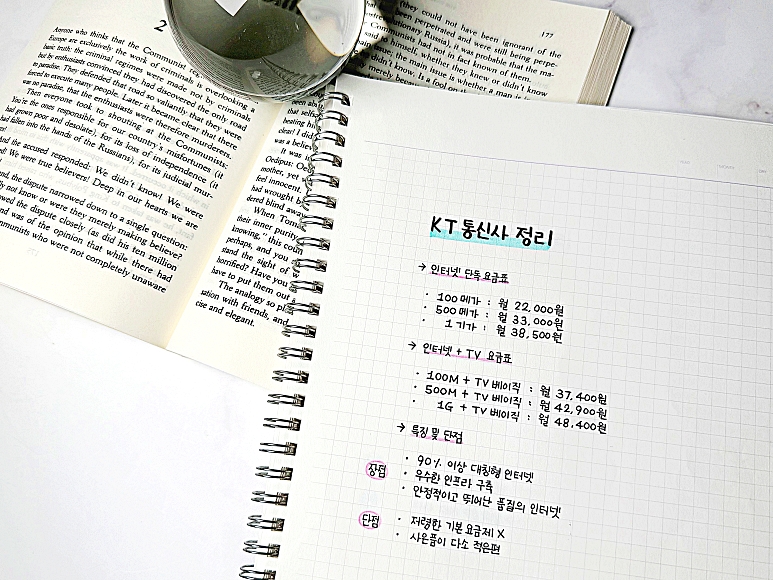 2
Anyone who thinks that the Communist
Europe are exclusively the work of criminals is overlooking a
basic truth: the criminal regimes were made not by criminals
but by enthusiasts convinced they had discovered the only road
to paradise. They defended that road so valiantly that they were
forced to execute many people. Later it became clear that there
was no paradise, that the enthusiasts were therefore murderers.
Then everyone took to shouting at the Communists:
You're the ones responsible for our country's misfortunes (it
had grown poor and desolate), for its loss of independence (it
had fallen into the hands of the Russians), for its judicial mur-
And the accused responded: We didn't know! We were
We were true believers! Deep in our hearts we are
the dispute narrowed down to a single question:
not know or were they merely making believe?
the dispute closely (as did his ten million
and was of the opinion that while there had
Communists who were not completely unaware
177
(they could not have been ignorant of the
perpetrated and were still being perpe-
Revolutionary Russia), it was probable that the ma-
Communists had not in fact known of them.
said to himself, whether they knew or didn't know
issue; the main issue is whether a man is
didn't know. Is a fool on
It was
Oedipus:
mother, yet
feel innocent.
had wrought
dered blind away
When Tom
their inner purity
knowing," this coun
perhaps, and you
stand the sight of
horrified? Have you
have to put them out
The analogy so
sation with friends, and
cise and elegant.
KT 통신사 정리
→ 인터넷 단독 요금표
· 100메가 : 월 22,000원
· 500메가 : 월 33,000원
· 1기가 : 월 38,500원
→ 인터넷 + TV 요금표
· 100M + TV 베이직 : 월 37,400원
· 500M + TV 베이직 : 월 42,900원
· 1G + TV 베이직 : 월 48,400원
→ 특징 및 단점
장점
· 90% 이상 대칭형 인터넷
· 우수한 인프라 구축
· 안정적이고 뛰어난 품질의 인터넷
단점
· 저렴한 기본 요금제 X
· 사은품이 다소 적은편